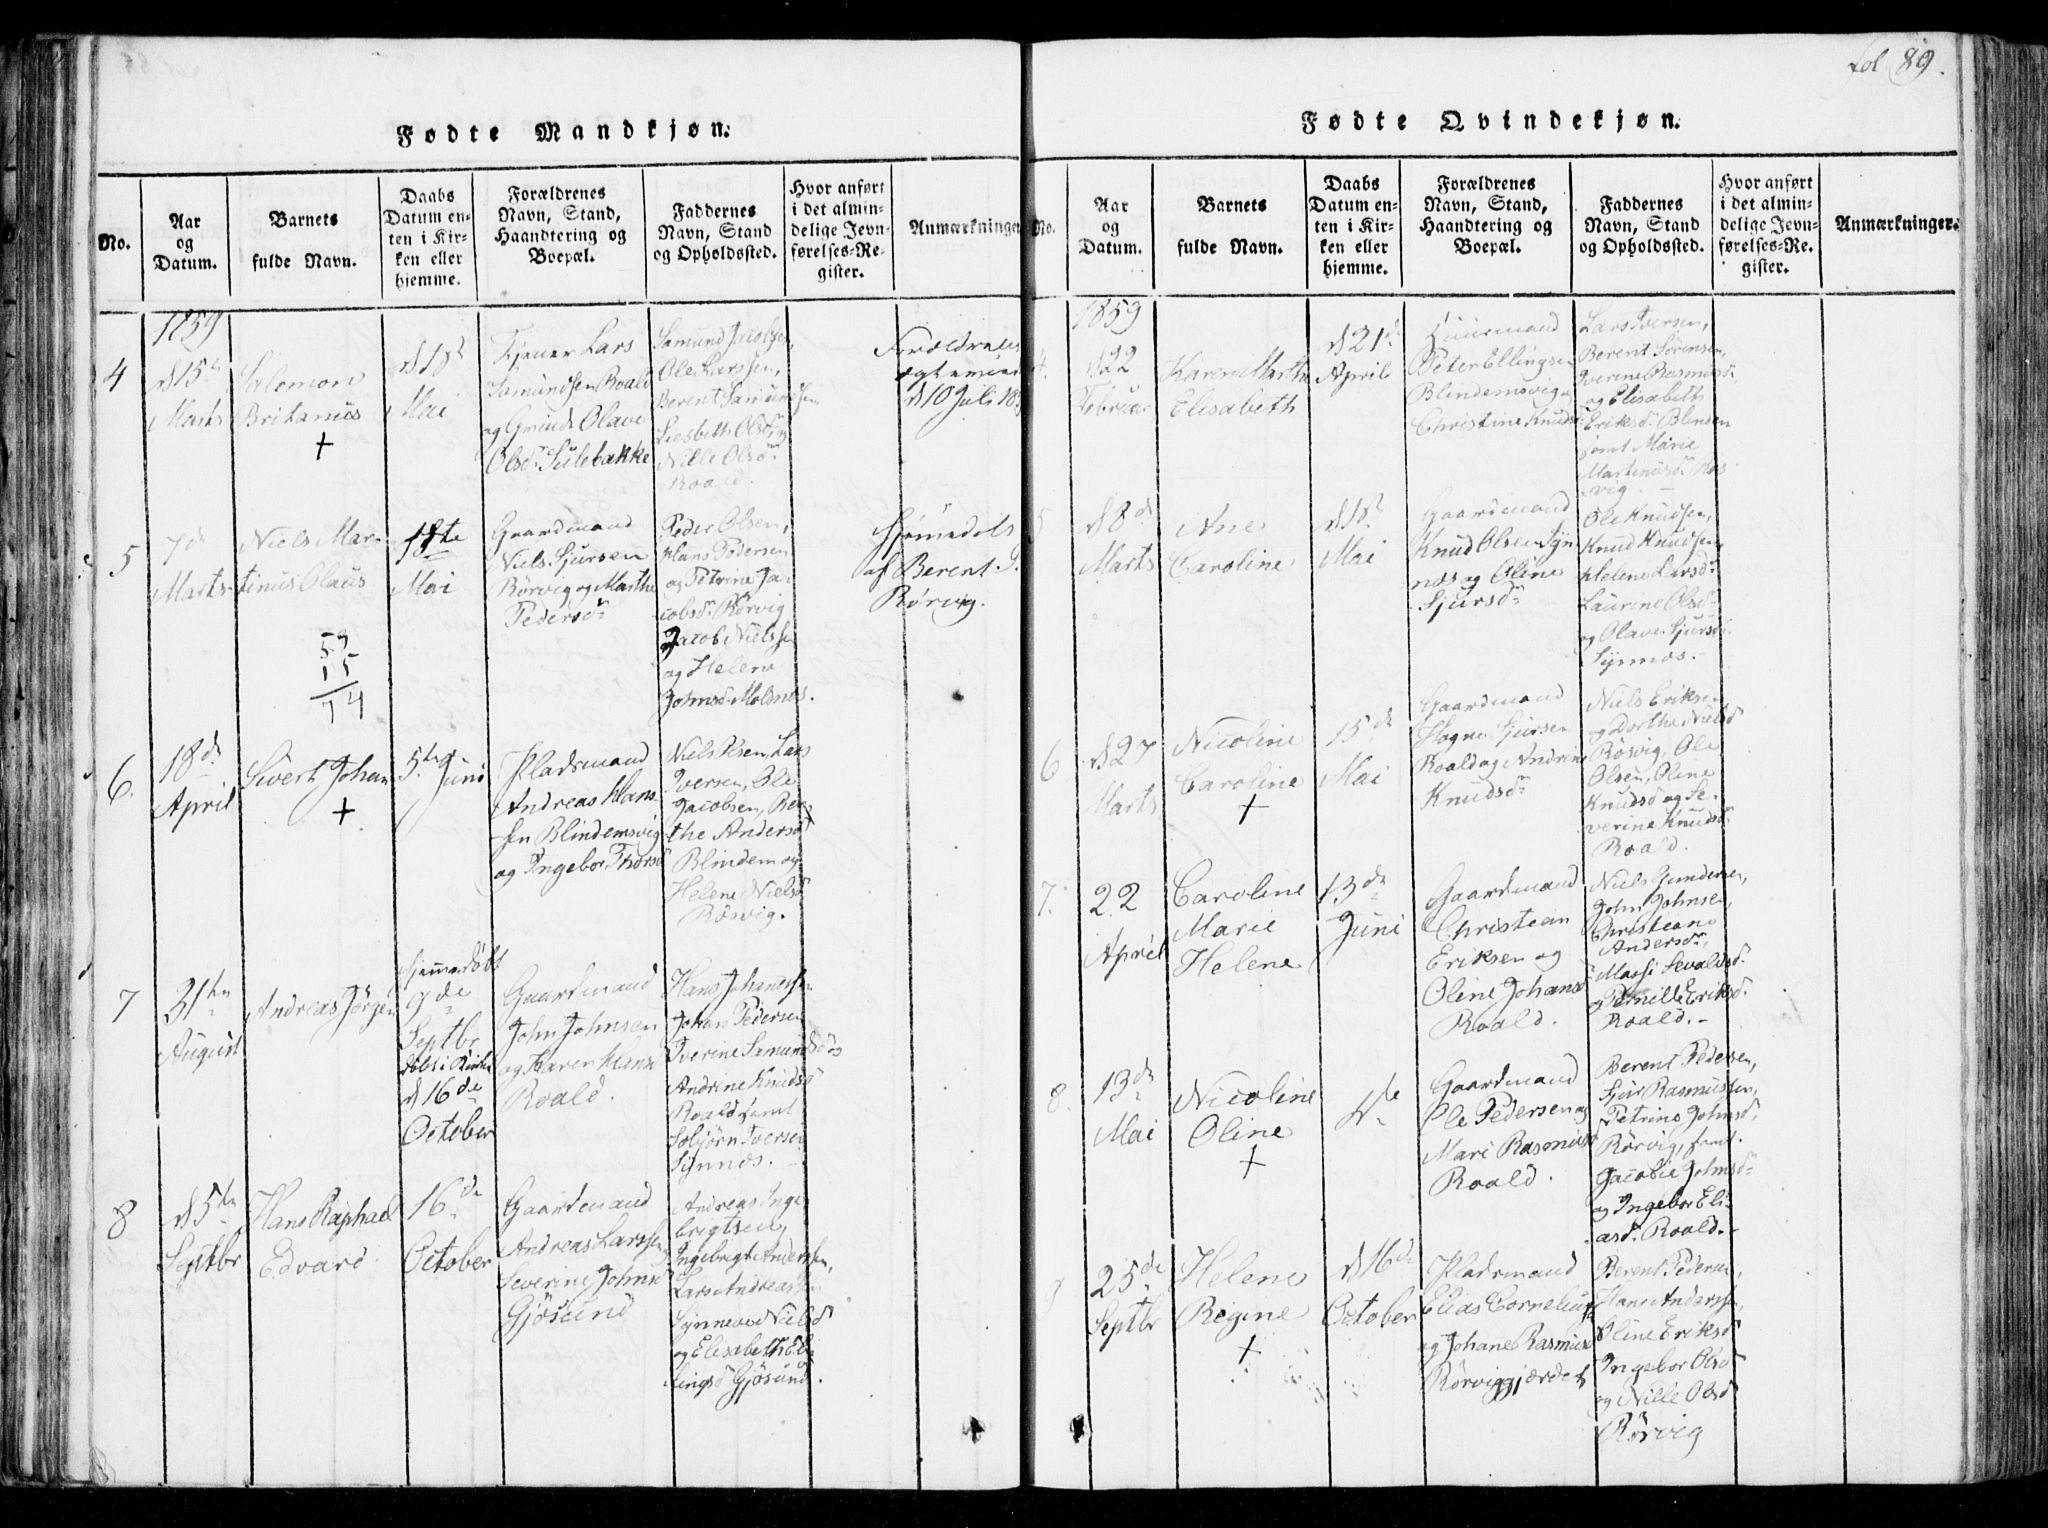 fol 89.
Fødte Mandkjøn.
No.
Aar
og
Datum.
Barnets
fulde Navn.
Daabs
Datum en-
ten i Kir-
ken eller
hjemme.
Forældrenes
Navn, Stand,
Haandtering og
Boepæl.
Faddernes
Navn, Stand
og Opholdssted.
Hvor anført
i det almin-
delige Jevn-
førelses-Re-
gister.
Anmærkninger
1859
4
d 15de
Marts
Salomon
Britanius
+
d 1ste
Mai
Lars
Samundsen Roald
og Olave
Olsdr Sulebakke
Samund Jacobsen,
Ole Larssen,
Berent Samundsen
Liesbeth Olsdr og
Nille Olsdr
Roald.
Forældrenes
d 10 Juli
5
7de
Marts
Niels Mar-
tinus Olaus
59
15
74
1ste
Mai
Gaardmand
Niels Sjursen
Rørvig og Marthe
Pedersdr
Peder Olsen,
Hans Pedersen
og Petrine Ja-
cobsdr Rørvig
Jacob Nielssen
og Helene
Johnsdr Moldnæs.
Hjemmedøbt
af Berent P.
Rørvig.
6.
18de
April
Sivert Johan
+
5te Juni
Pladsmand
Andreas Hans-
sen Blindemsvig
og Ingebor Thorsd
Niels Olsen, Lars
Iversen, Ole
Jacobsen, Be-
the Andersd
Blindem og
Helene Nielsd
Røsvig.
7
31te
August
Andreas Jörgen
hjemmedöbt
9de
Septbr
döbt i Kirken
d 16de
October
Gaardmand
John Johnsen
og Karen Hansd
Roald.
Hans Johanessen
Johan Pedersen
Iverine Samundsd
Andrine Knudsd
Roald samt
Iversen
Synnes.
8
d 5te
Septbr
Hans Raphael
Edvard
16de
October
Gaardmand
Andreas Larssen
Severine Johnsd
Gjøsund
Andreas Inge-
brigtsen,
Ingebregt Anderssen,
Lars Andreassen
Synneve Nielsd
og Elisabeth El-
lingsd Gjøsund.
Fødte Qvindekjøn.
No.
Aar
og
Datum.
Barnets
fulde Navn.
Daabs
Datum en-
ten i Kir-
ken eller
hjemme.
Forældrenes
Navn, Stand,
Haandtering og
Boepæl.
Faddernes
Navn, Stand
og Opholdssted.
Hvor anført
i det almin-
delige Jevn-
førelses-Re-
gister.
Anmærkninger.
1859
4.
d 22
Februar
Karen Marthe
Elisabeth
d 21de
April
Huusmand
Peter Ellingsen
Blindemsvig og
Christine Knudsd
Lars Iversen,
Berent Sørensen,
Iverine Rasmusd
og Elisabeth
Eriksdr Blindem
samt Marie
Martinusdr Røs-
vig.
5
d 8de
Marts
Ane
Caroline
d 1ste
Mai
Gaardmand
Knud Olsen Syn-
næs og Oline
Sjursdr
Ole Knudsen,
Knud Knudsen,
Helene Larsdr
Laurine Olsdr
og Olave Sjursdr
Synnæs.
6
d 27
Marts
Nicoline
Caroline
+
15de
Mai
Gaardmand
Hogne Sjursen
Roald og Andrine
Knudsdr
Niels Eriksen
og Dorthe Nielsd
Røsvig, Ole
Olsen, Oline
Knudsd og Se-
verine Knudsd
Roald.
7.
22
April
Caroline
Marie
Helene
13de
Juni
Gaardmand
Christian
Eriksen og
Oline Johansd
Roald.
Niels Gundersen,
John Johnsen,
Christiane
Andersdr,
Massi Sevaldsd.
og Pernille Eriksd.
Roald.
8.
13de
Mai
Nicoline
Oline
+
Gaardmand
Ole Pedersen og
Mari Rasmusd
Roald.
Berent Pedersen,
Sjur Rasmussen,
Petrine Johnsd,
Rørvig, samt
Jacobie Johnsdr
og Ingebor Eli-
asd. Roald.
9
25de
Septbr
Helene
Regine
+
d 16de
October
Pladsmand
Elias Cornelius
og Johane Rasmusd
Rørviggjærdet
Berent Pedersen,
Hans Anderssen,
Oline Eriksd
Ingebor Olsd
og Nille Olsd
Rørvig